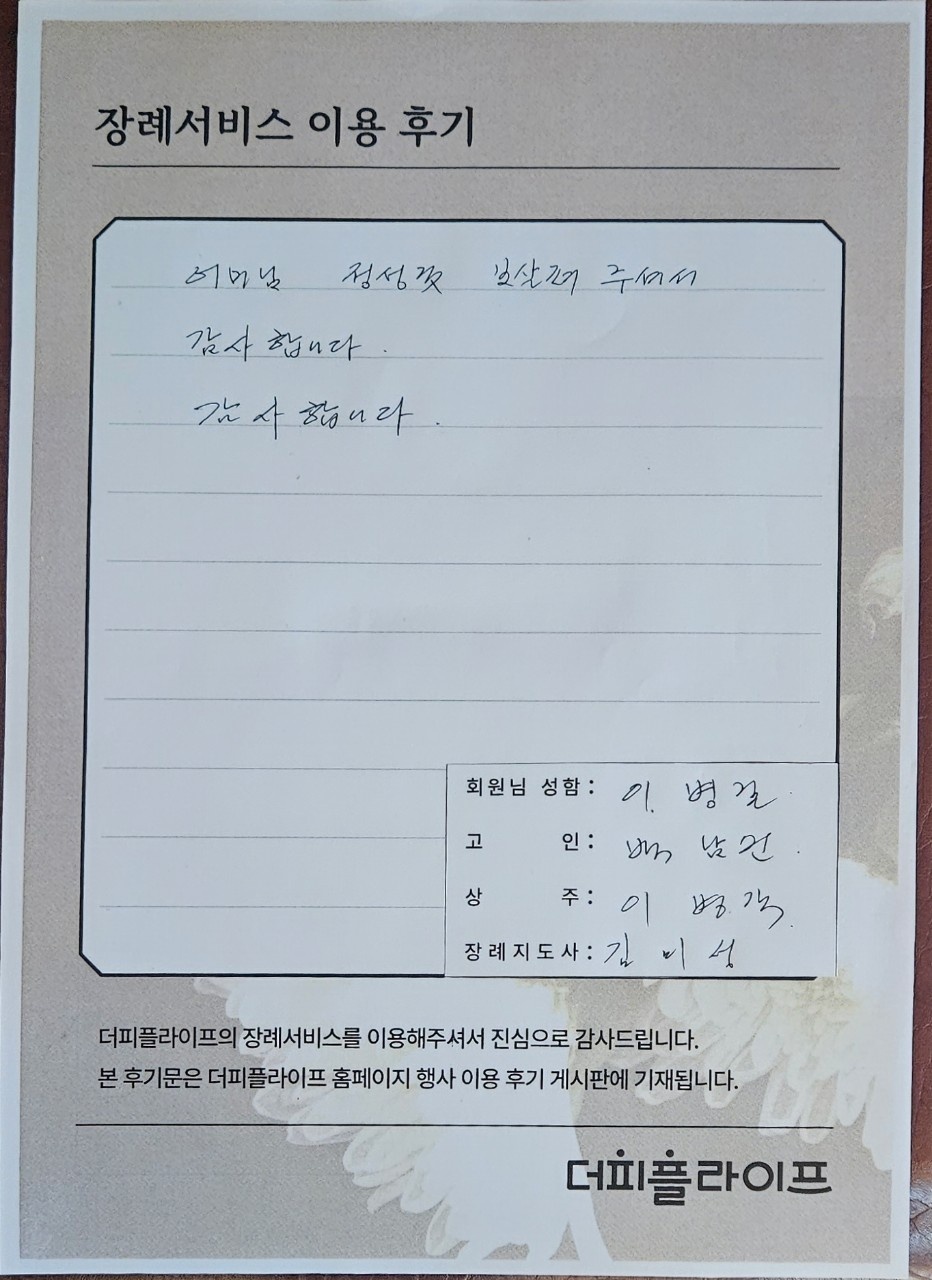 장례서비스 이용 후기
어머님 정성껏 보살펴 주셔서
감사합니다.
감사합니다.
회원님 성함: 이병길
고 인: 백남연
상 주: 이병각
장례지도사: 김미성
더피플라이프의 장례서비스를 이용해주셔서 진심으로 감사드립니다.
본 후기문은 더피플라이프 홈페이지 행사 이용 후기 게시판에 기재됩니다.
더피플라이프